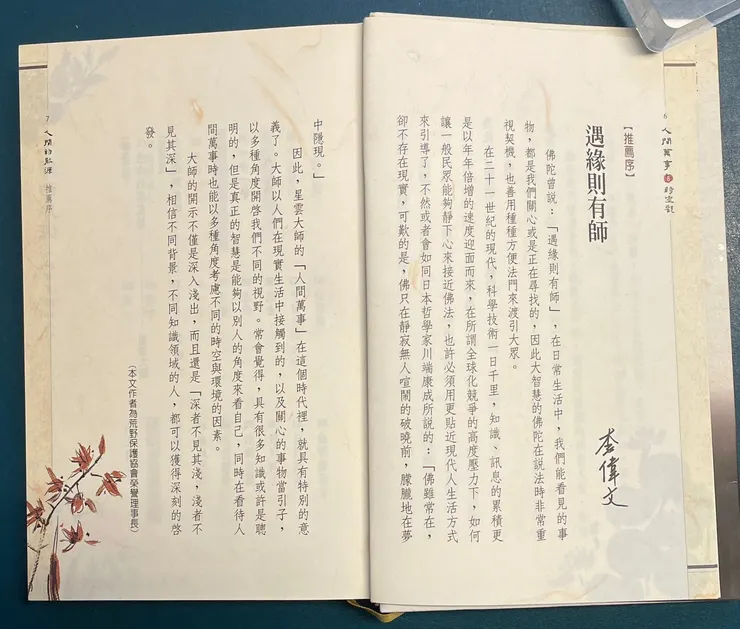 6 人間萬事 8 時空觀
【推薦序】
遇緣則有師
李偉文
佛陀曾說：「遇緣則有師」，在日常生活中，我們能看見的事
物，都是我們關心或是正在尋找的，因此大智慧的佛陀在說法時非常重
視契機，也善用種種方便法門來渡引大眾。
在二十一世紀的現代，科學技術一日千里，知識、訊息的累積更
是以年年倍增的速度迎面而來，在所謂全球化競爭的高度壓力下，如何
讓一般民眾能夠靜下心來接近佛法，也許必須用更貼近現代人生活方式
來引導了，不然或者會如同日本哲學家川端康成所說的：「佛雖常在，
卻不存在現實，可歎的是，佛只在靜寂無人喧鬧的破曉前，朦朧地在夢
7 人間的 推薦序
中隱現。」
因此，星雲大師的「人間萬事」在這個時代裡，就具有特別的意
義了。大師以人們在現實生活中接觸到的，以及關心的事物當引子，
以多種角度開啓我們不同的視野。常會覺得，具有很多知識或許是聰
明的，但是真正的智慧是能夠以別人的角度來看自己，同時在看待人
間萬事時也能以多種角度考慮不同的時空與環境的因素。
大師的開示不僅是深入淺出，而且還是「深者不見其淺，淺者不
見其深」，相信不同背景，不同知識領域的人，都可以獲得深刻的啓
發。
（本文作者為荒野保護協會榮譽理事長）